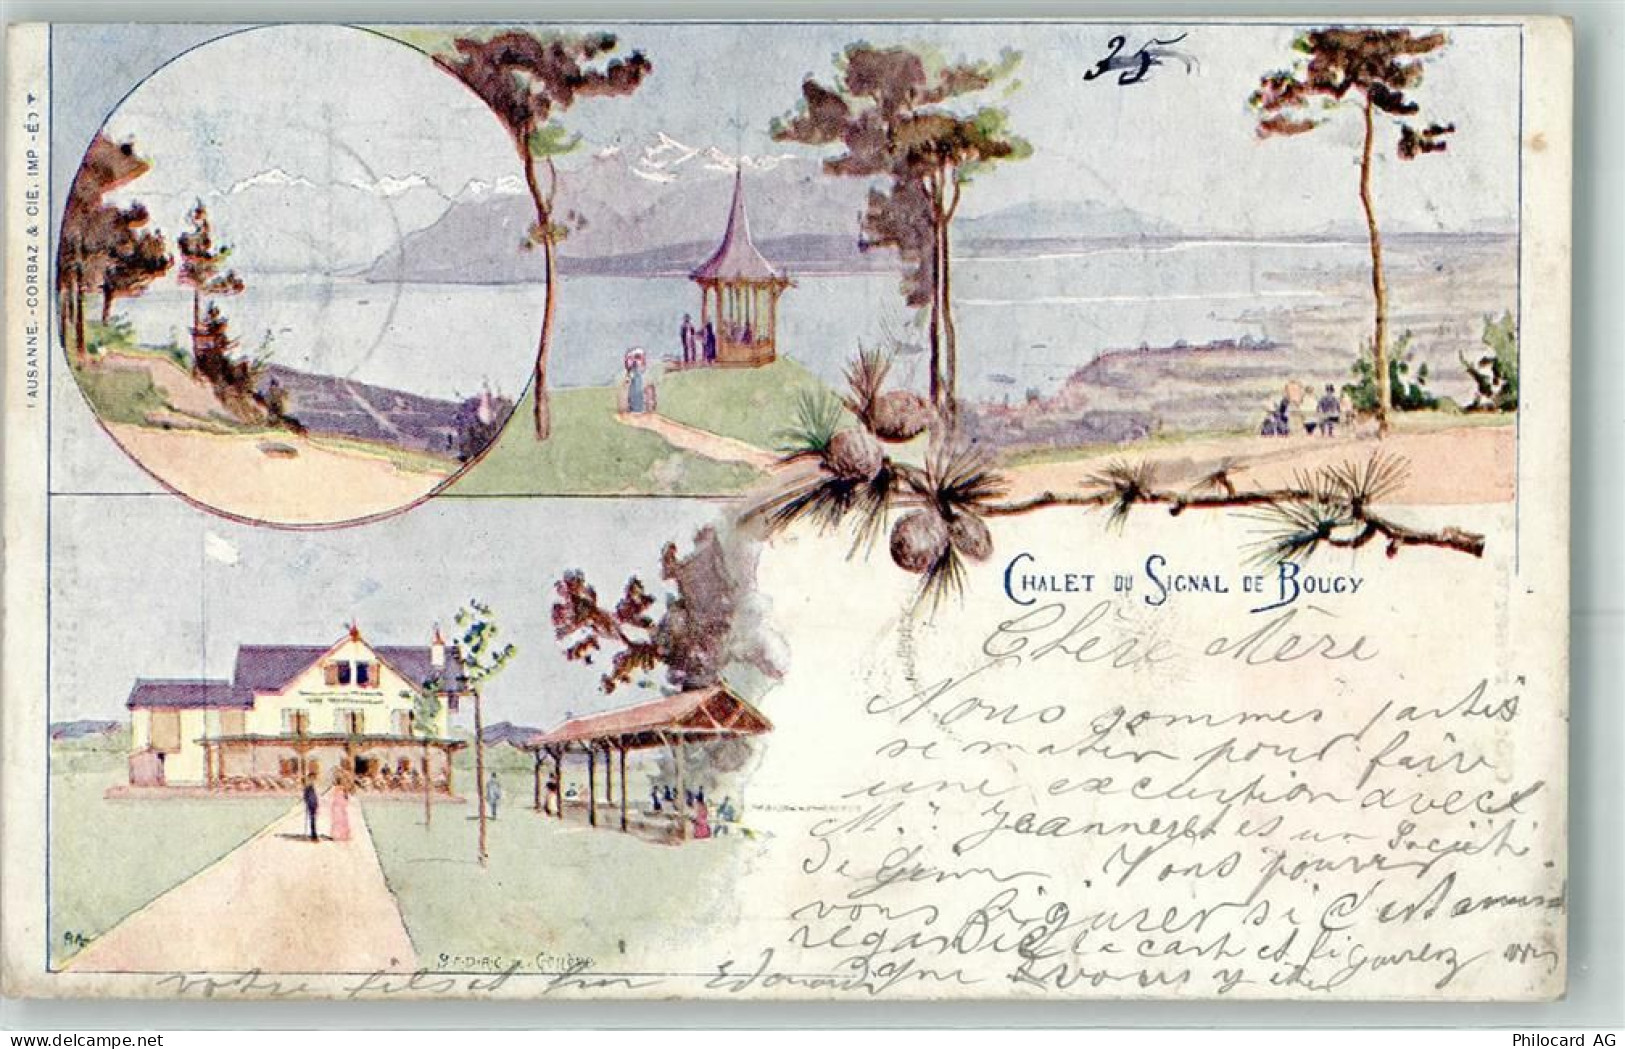 35
LAUSANNE. - CORBAZ & CIE, IMP - ÉD
CHALET DU SIGNAL DE BOUGY
Chère Mère
Nous sommes partis
se matin pour faire
une excurtion avec
M. Jeanneret et un Société
de Gim Vous pouvez
vous figurer si c'est amusant
regardez la carte et figurez vous
votre fils Edouard que vous y ête
Philocard AG